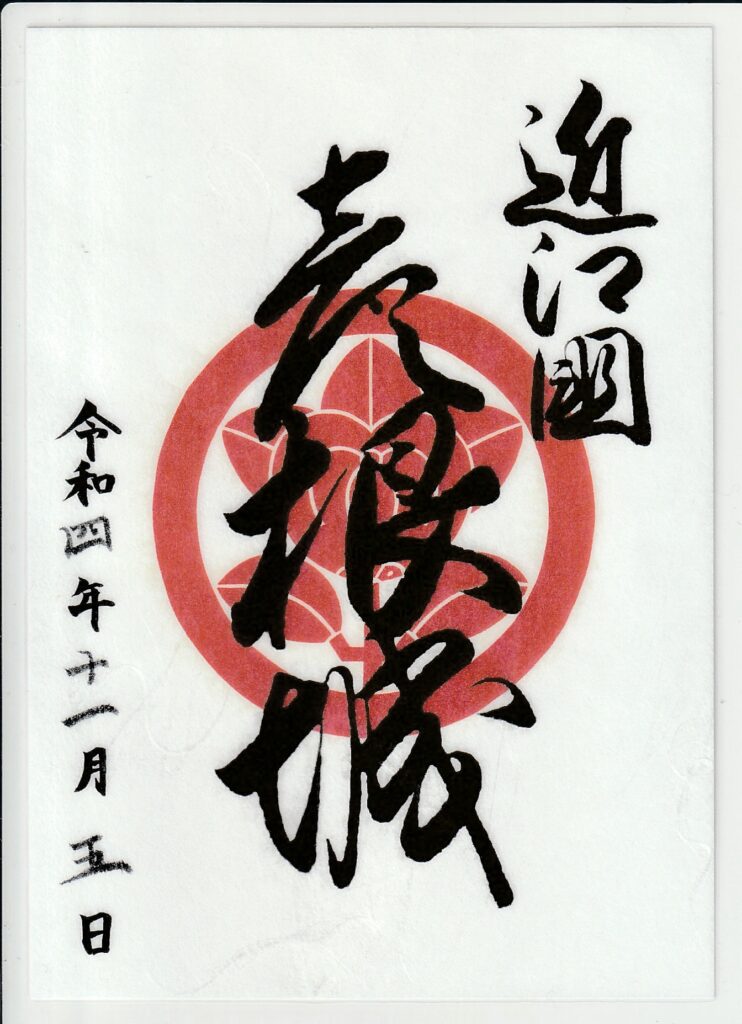 近江國
彦根城
令和四年十一月五日